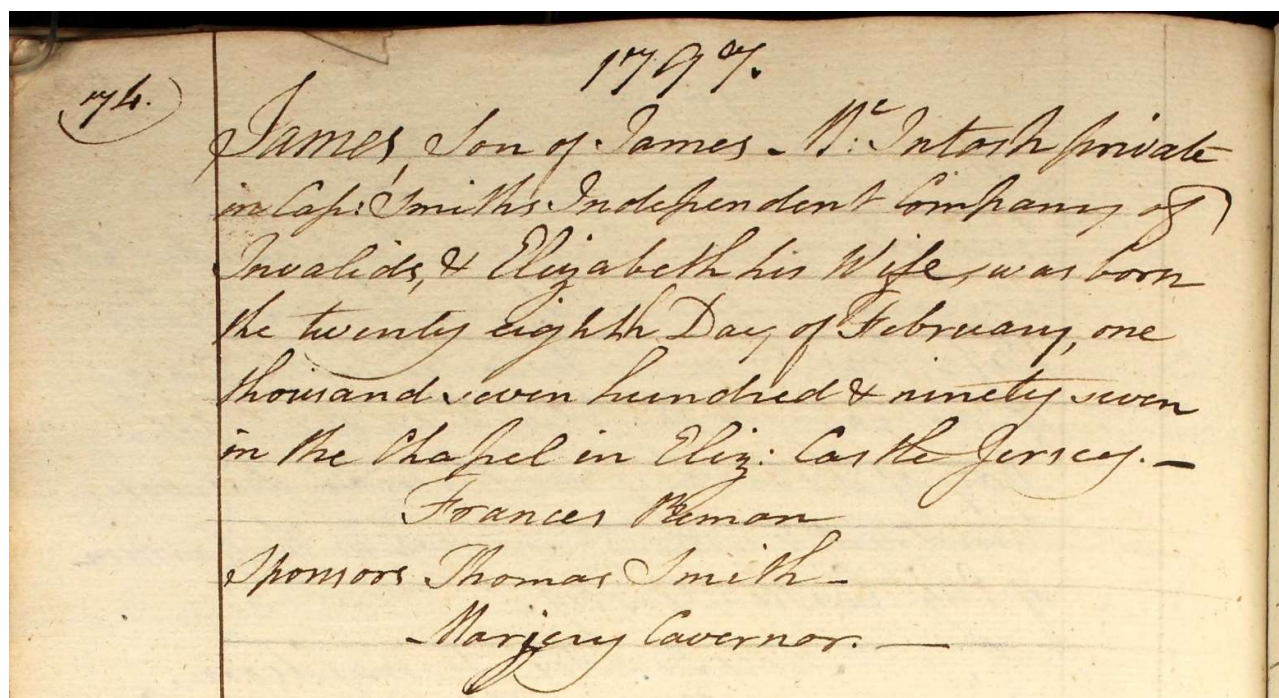 1797.
74.
James, Son of James Mc: Intosh private
in Cap: Smith's Independent Company of
Invalids, & Elizabeth his Wife, was born
the twenty eighth Day of February, one
thousand seven hundred & ninety seven
in the Chapel in Eliz: Castle Jersey. —
Frances
Sponsors Thomas Smith —
Marjery Cavernor. —